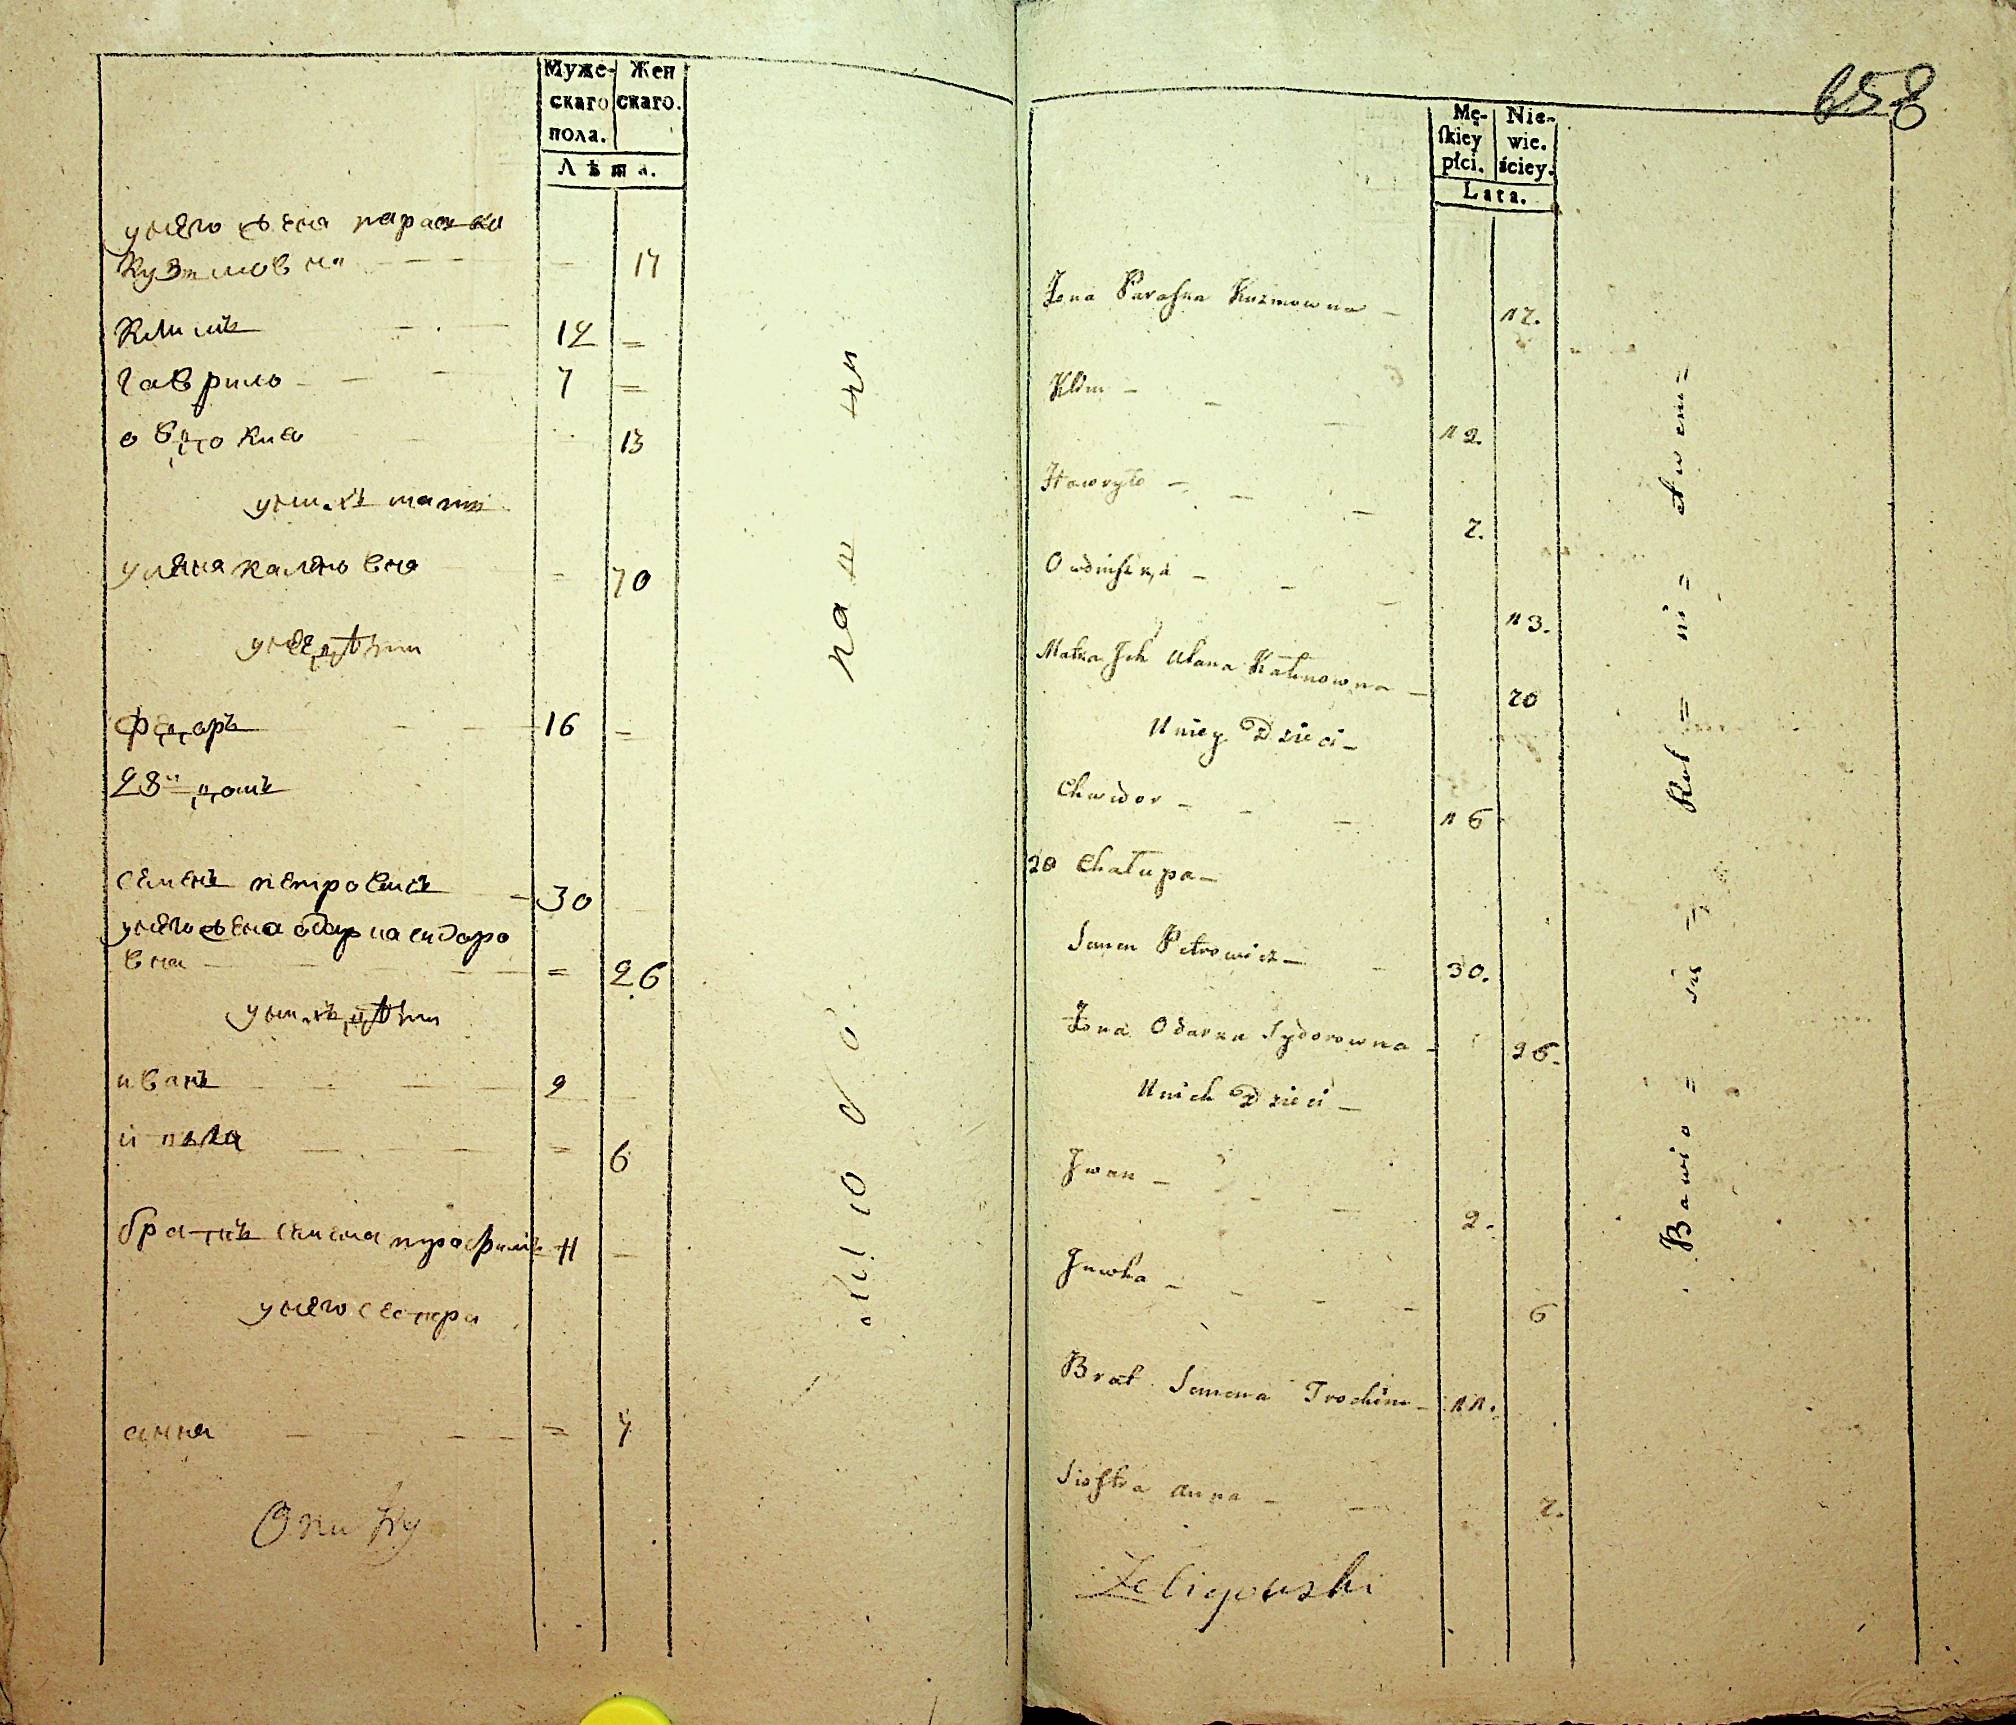 Муже- Жен
скаго скаго.
пола.
Лѣта.
унего жена параска
Кузмовна 17
Климъ 12 =
гаврило 7 =
овдокиа 13
унихъ мати
уляна калѣновна = 70
унее дѣти
Федоръ 16 =
28й домъ
семенъ петровичъ 30
унего жена одарка сидоро
вна = 26
унихъ дѣти
иванъ 2
ивга = 6
братъ семена трофимъ 11
унего сестра
анна = 7
658
Mę- Nie-
ſkiey wie.
płci. ściey.
Lata.
Żona Paraska Kuzmowna 17.
Klim 12.
Hawryło 7.
13.
Matka Ich Ulana Kalinowna 70
U niey Dzieci
Chwedor 16
28 Chałupa
Semen Petrowicz 30.
Żona Odarka Sydorowna 26.
U nich Dzieci
Iwan 2.
Jewka 6
Brat Semena Trochim 11.
Siostra Anna 7.
Żeligowski